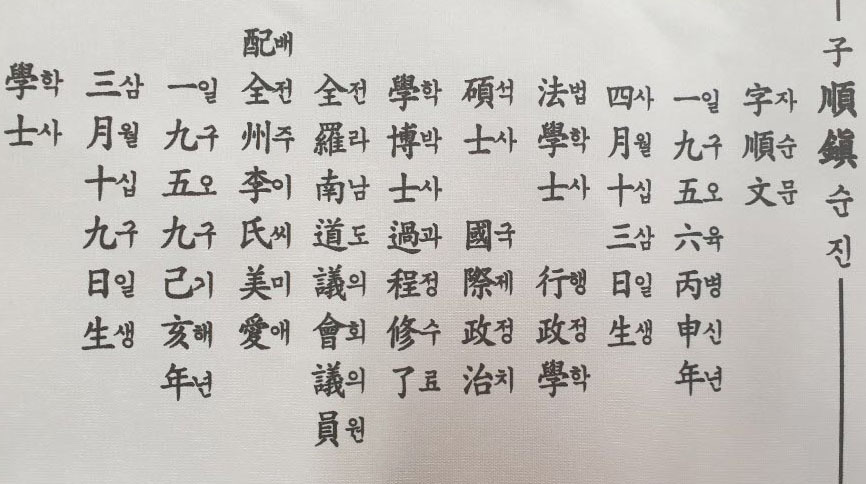 子順鎭순진
字자順순文문
一일九구五오六육丙병申신年년
四사月월十십三삼日일生생
法법學학士사 行행政정學학
碩석士사 國국際제政정治치
學학博박士사過과程정修수了료
全전羅라南남道도議의會회議의員원
配배全전州주李이氏씨美미愛애
一일九구五오九구己기亥해年년
三삼月월十십九구日일生생
學학士사